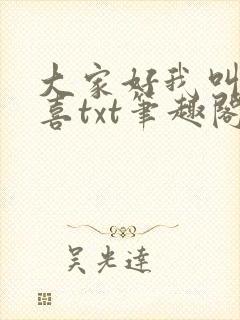 大家好我叫
喜txt笔趣阁
吴光达